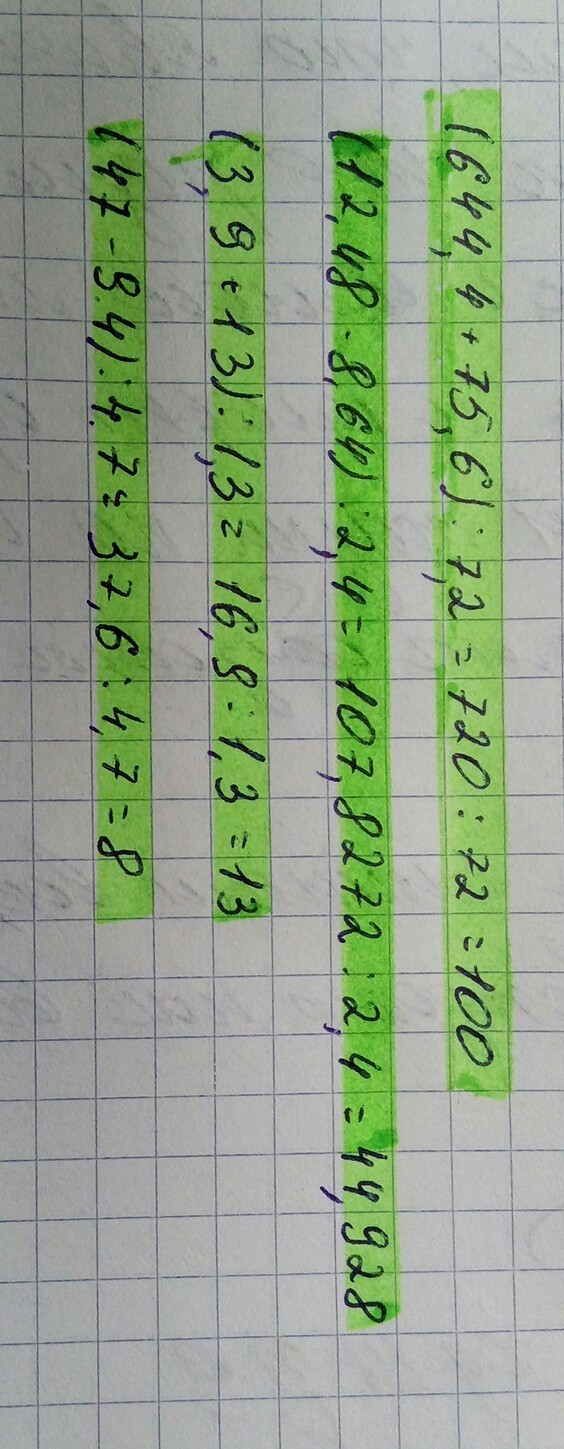 (644,4+75,6):7,2=720:72=100
(12,48·8,64):2,4=107,8272:2,4=44,928
(3,9+13):1,3=16,9:1,3=13
(47-9.4):4,7=37,6:4,7=8